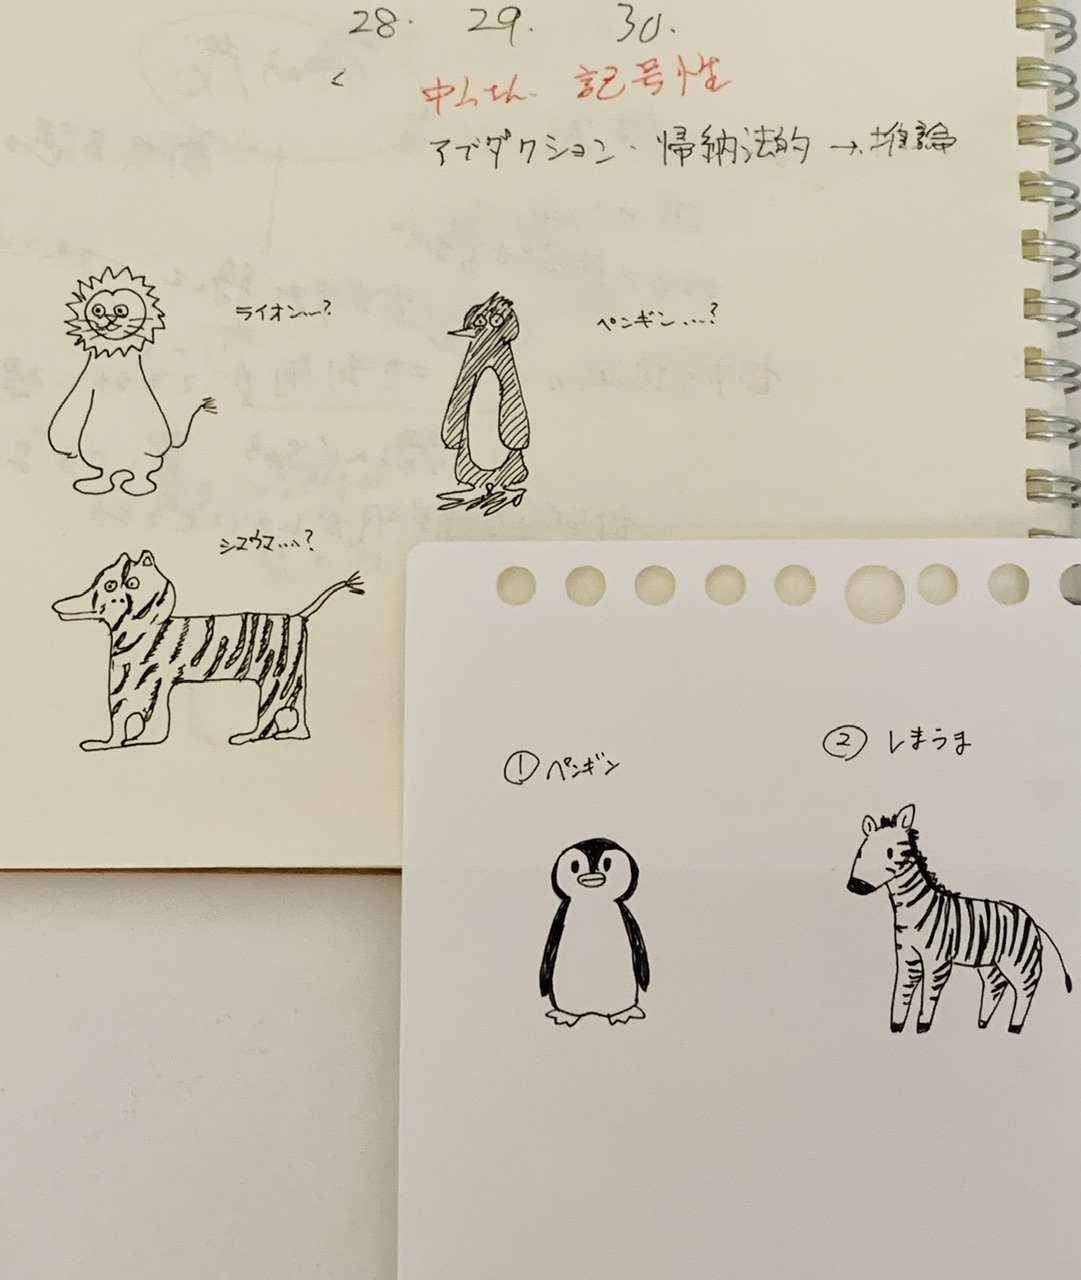 28. 29. 30.
中ムさん 記号性
アブダクション・帰納法的 → 推論
ライオン....?
ペンギン....?
シマウマ....?
① ペンギン
② しまうま